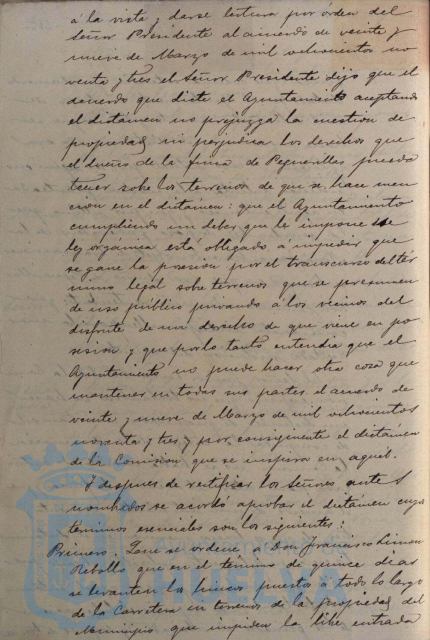 á la vista y darse lectura por órden del
Señor Presidente al acuerdo de veinte y
nueve de Marzo de mil ochocientos no-
venta y tres el Señor Presidente dijo que el
acuerdo que dicte el Ayuntamiento aceptando
el dictámen no prejuzga la cuestion de
propiedad ni perjudica los derechos que
el dueño de la finca de Peguerillas pueda
tener sobre los terrenos de que se hace men
cion en el dictámen: que el Ayuntamiento
cumpliendo un deber que le impone la
ley orgánica está obligado á impedir que
se gane la posesion por el transcurso del tér
mino legal sobre terrenos que se presumen
de uso público privando á los vecinos del
disfrute de un derecho de que viene en po
sesion y que por lo tanto entendia que el
Ayuntamiento no puede hacer otra cosa que
mantener en todas sus partes el acuerdo de
veinte y nueve de Marzo de mil ochocientos
noventa y tres y por consiguiente el dictámen
de la Comision que se inspira en aquel.
Y despues de rectificar los Señores antes
nombrados se acordó aprobar el dictámen cuyos
términos esenciales son los siguientes:
Primero. Que se ordene á Don Francisco Limon
Rebollo que en el término de quince dias
se levanten los lineos puestos á todo lo largo
de la Carretera en terrenos de la propiedad del
Municipio que impiden la libre entrada
HUELVA